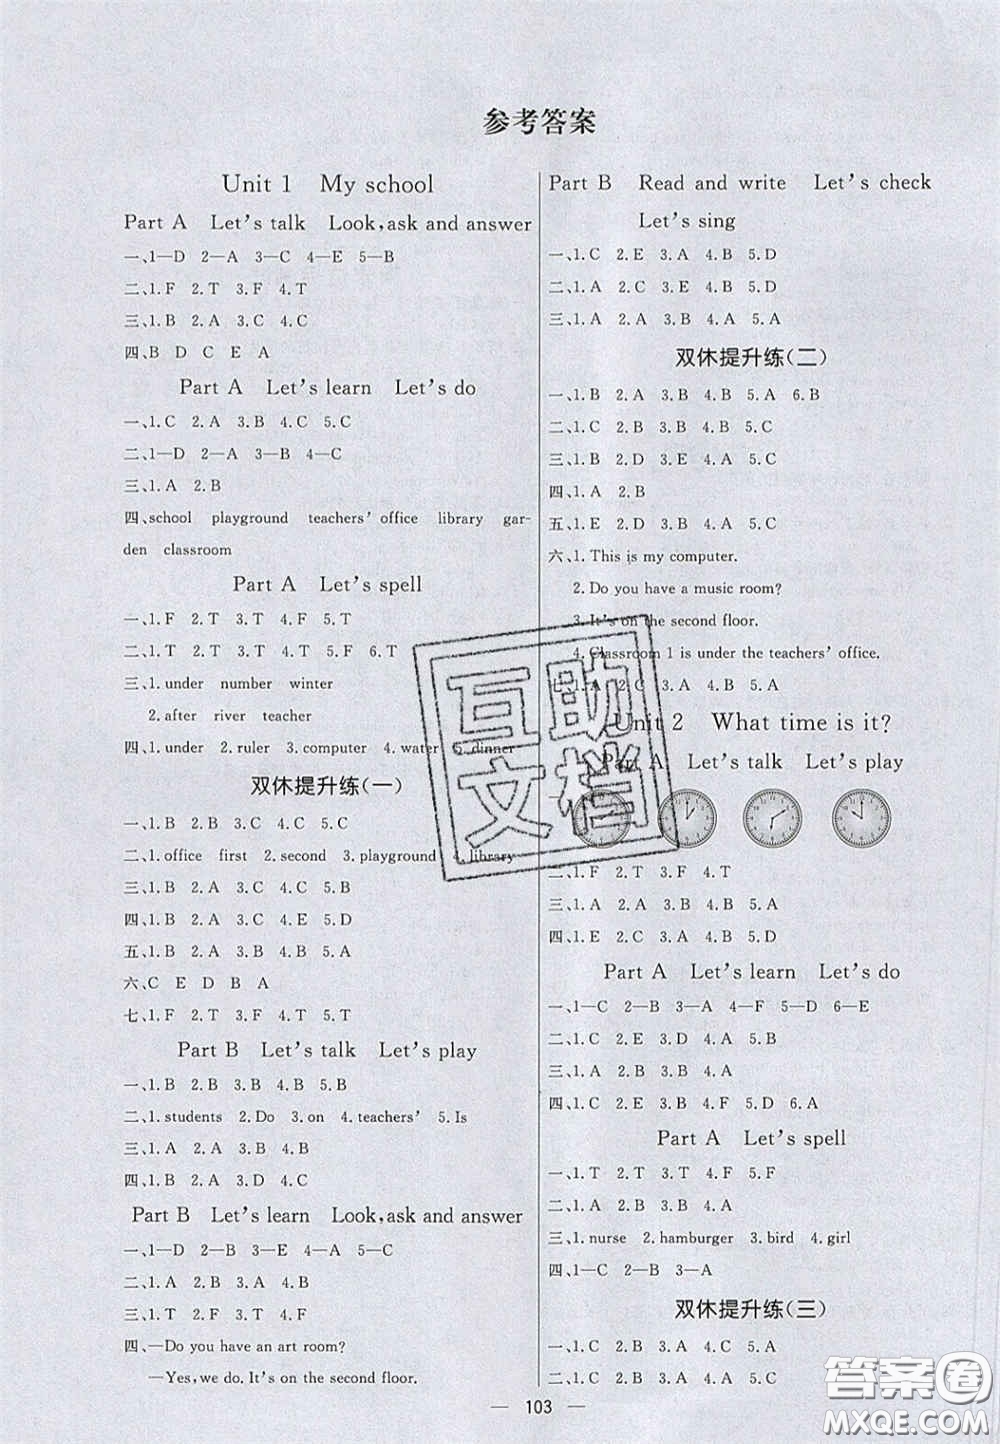 参考答案
Unit 1　My school
Part A　Let's talk　Look, ask and answer
一、1—D　2—A　3—C　4—E　5—B
二、1. F　2. T　3. F　4. T
三、1. B　2. A　3. C　4. C
四、B　D　C　E　A
Part A　Let's learn　Let's do
一、1. C　2. A　3. B　4. C　5. C
二、1—D　2—A　3—B　4—C
三、1. A　2. B
四、school　playground　teachers' office　library　gar-
den　classroom
Part A　Let's spell
一、1. F　2. T　3. T　4. F　5. T
二、1. T　2. T　3. T　4. T　5. F　6. T
三、1. under　number　winter
2. after　river　teacher
四、1. under　2. ruler　3. computer　4. water　5. dinner
双休提升练(一)
一、1. B　2. B　3. C　4. C　5. C
二、1. office　first　2. second　3. playground　4. library
三、1. B　2. A　3. C　4. C　5. B
四、1. B　2. A　3. C　4. E　5. D
五、1. B　2. A　3. B　4. B　5. A
六、C　E　D　B　A
七、1. F　2. T　3. F　4. T　5. T
Part B　Let's talk　Let's play
一、1. B　2. B　3. B　4. A　5. B
二、1. students　2. Do　3. on　4. teachers'　5. Is
三、1. A　2. A　3. A　4. B
四、1. B　2. A　3. D　4. C
Part B　Let's learn　Look, ask and answer
一、1—D　2—B　3—E　4—A　5—C
二、1. A　2. A　3. B　4. A
三、1. T　2. F　3. T　4. F
四、—Do you have an art room?
—Yes, we do. It's on the second floor.
Part B　Read and write　Let's check
Let's sing
一、1. C　2. E　3. A　4. B　5. D
二、1. A　2. C　3. E　4. B　5. D
三、1. A　2. A　3. B　4. A　5. A
双休提升练(二)
一、1. B　2. A　3. A　4. B　5. A　6. B
二、1. C　2. B　3. B　4. B　5. C
三、1. B　2. D　3. E　4. A　5. C
四、1. A　2. B
五、1. E　2. D　3. B　4. A　5. C
六、1. This is my computer.
2. Do you have a music room?
3. It's on the second floor.
4. Classroom 1 is under the teachers' office.
七、1. A　2. C　3. A　4. A　5. A
Unit 2　What time is it?
Part A　Let's talk　Let's play
一、
二、1. F　2. T　3. F　4. T
三、1. A　2. A　3. B　4. B　5. A
四、1. E　2. C　3. A　4. B　5. D
Part A　Let's learn　Let's do
一、1—C　2—B　3—A　4—F　5—D　6—E
二、1. C　2. E　3. A　4. D　5. B
三、1. A　2. B　3. B　4. A
四、1. C　2. E　3. B　4. F　5. D　6. A
Part A　Let's spell
一、1. T　2. T　3. T　4. F　5. F
二、1. A　2. B　3. A　4. A　5. A
三、1. nurse　2. hamburger　3. bird　4. girl
四、1—C　2—B　3—A
双休提升练(三)
一、1. C　2. B　3. A　4. C　5. A
二、1. C　2. B　3. A　4. B
103
互助
文档
答案圈
MXQE.COM